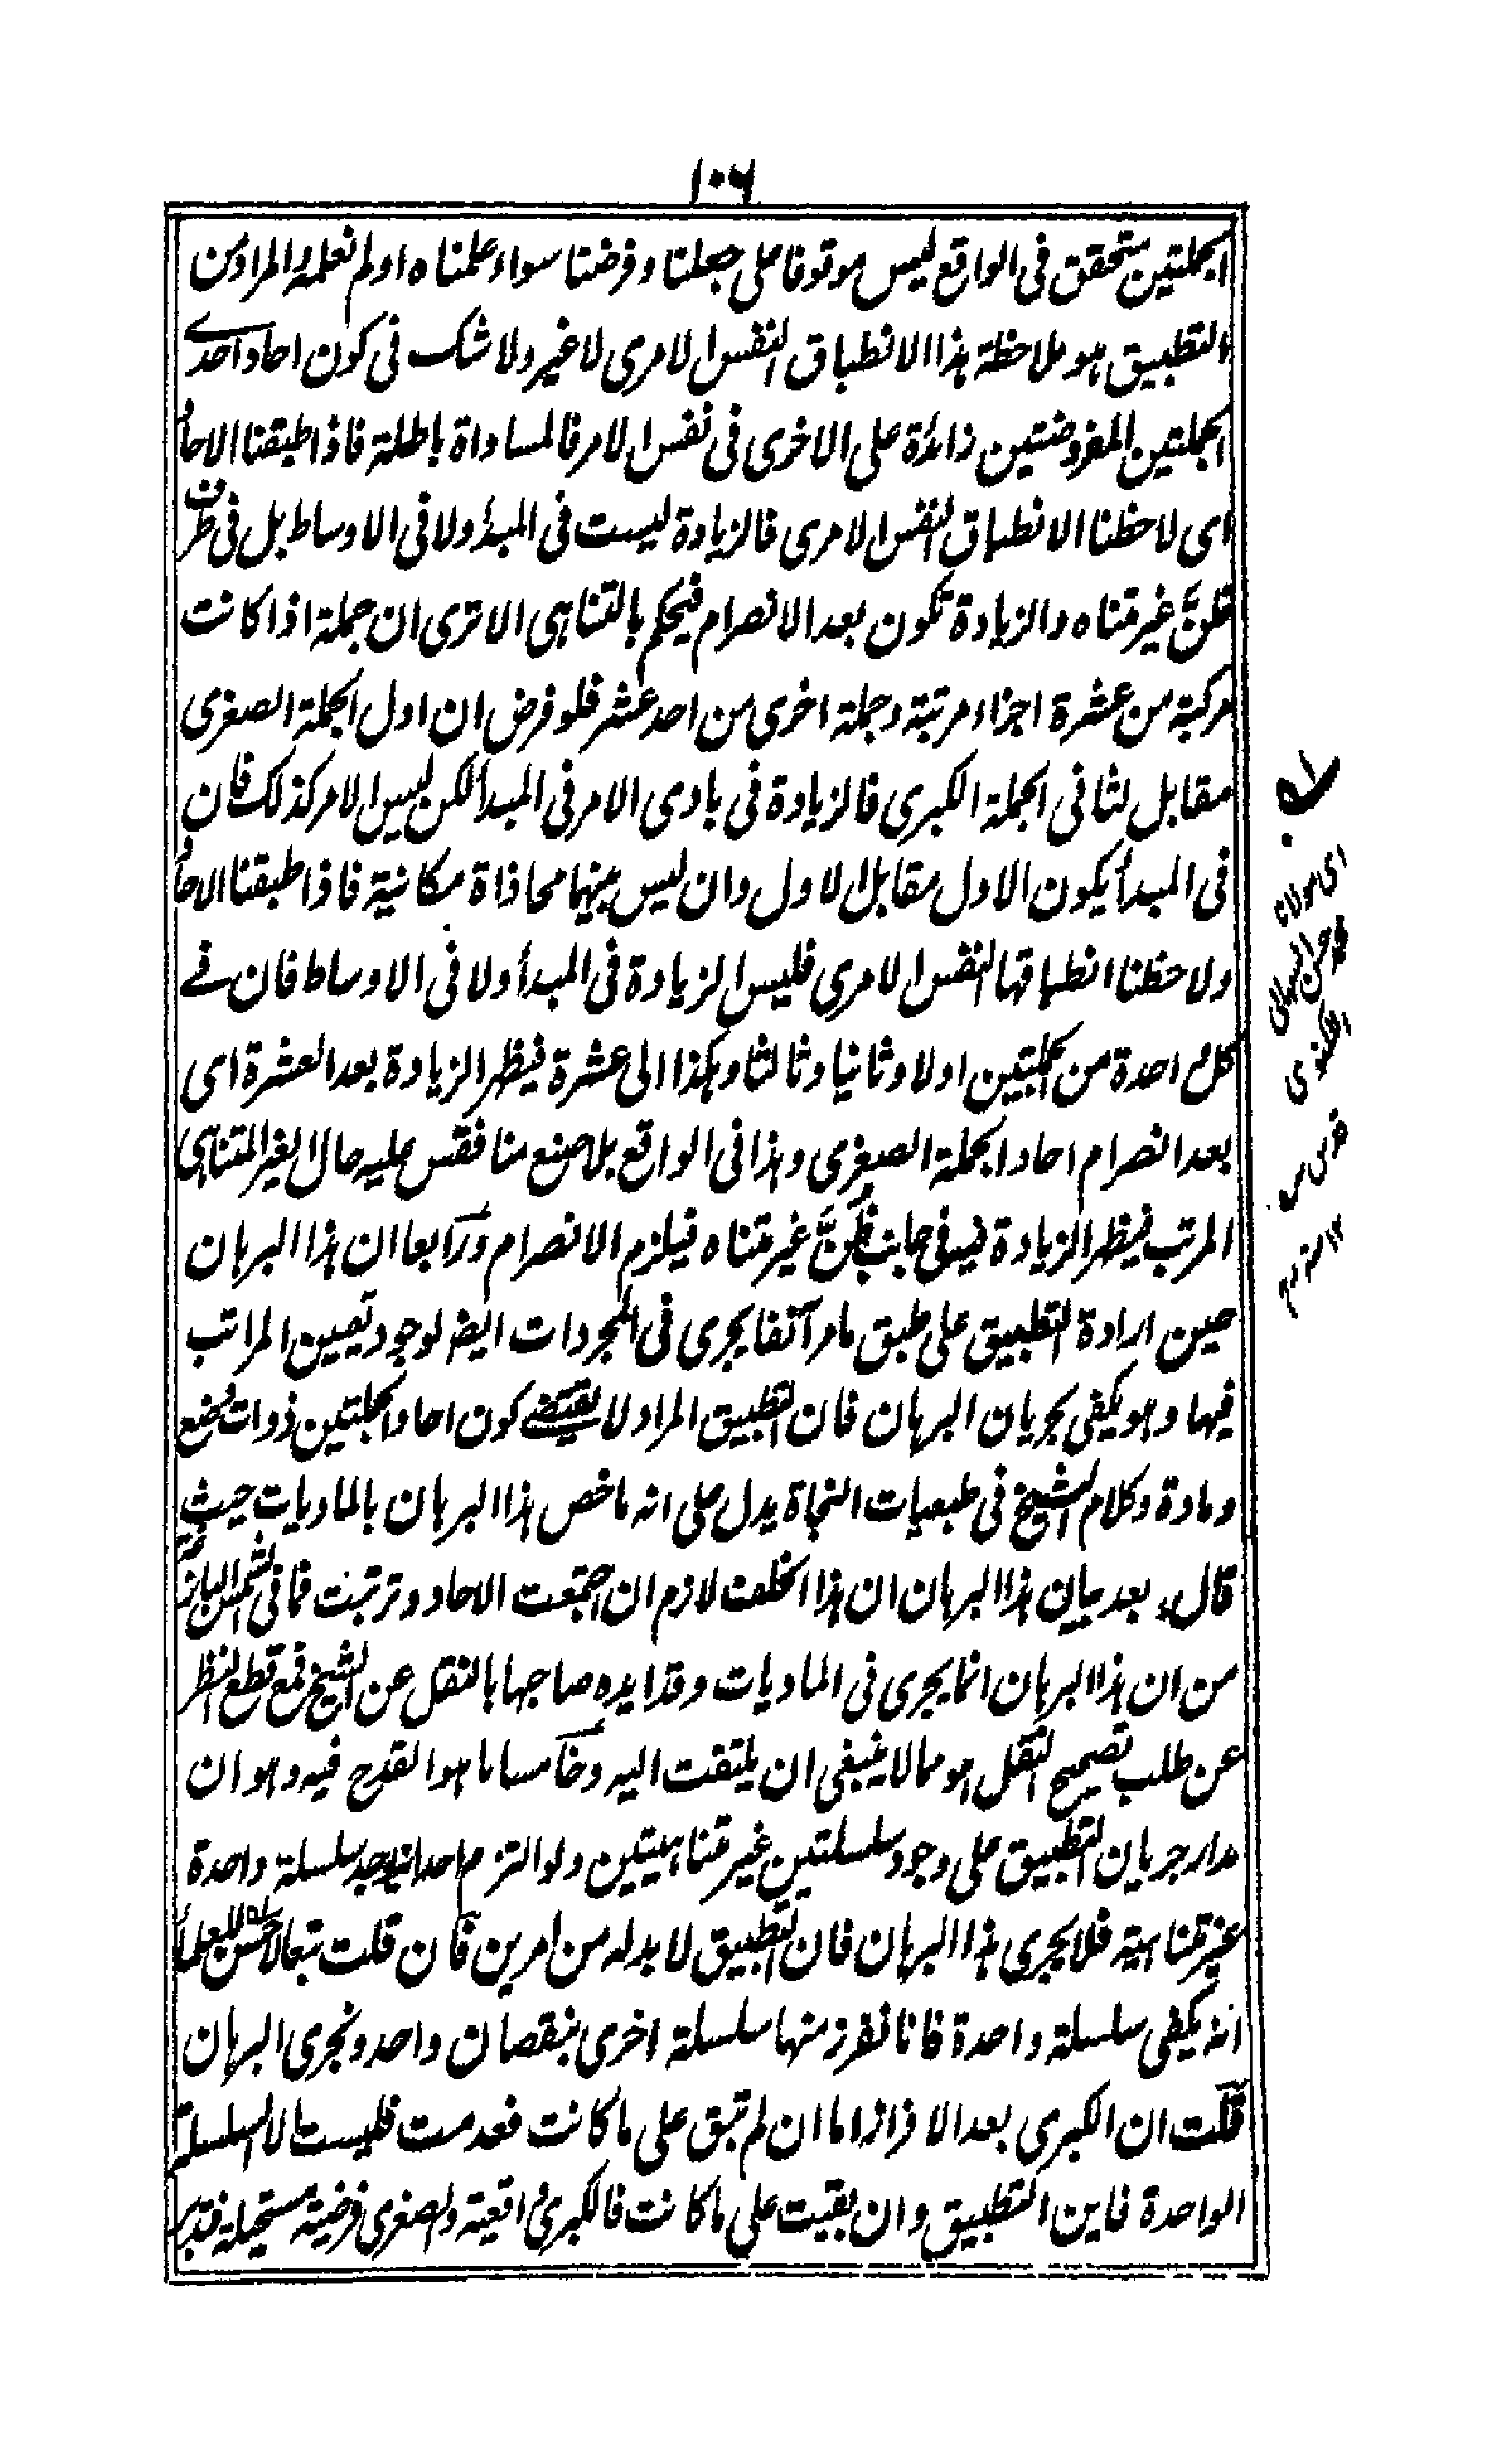 ١٠٦
الجملتين متحقق فى الواقع ليس موقوفا على جعلنا وفرضنا سواء علمناه اولم نعلمه والمراد من
التطبيق هو ملاحظة هذا الانطباق النفس الامرى لا غير ولا شك فى كون احاد احدے
الجملتين المفروضتين زائدة على الاخرى فى نفس الامر فالمساواة باطلة فاذا طبقنا الاحاد
اى لاحظنا الانطباق النفس الامرى فالزيادة ليست فى المبدأ ولا فى الاوساط بل فى طرف
ظُنَّ غير متناه والزيادة تكون بعد الانصرام فيحكم بالتناهى الا ترى ان جملة اذا كانت
مركبة من عشرة اجزاء مرتبة وجملة اخرى من احد عشر فلو فرض ان اول الجملة الصغرى
مقابل لثانى الجملة الكبرى فالزيادة فى بادى الامر فى المبدأ لكن ليس الامر كذلك فان
فى المبدأ يكون الاول مقابل الاول وان ليس بينهما محاذاة مكانية فاذا طبقنا الاحاد
ولاحظنا انطباقها النفس الامرى فليس الزيادة فى المبدأ ولا فى الاوساط فان فے
كل واحدة من الجملتين اولا وثانيا وثالثا وهكذا الى عشرة فيظهر الزيادة بعد العشرة اى
بعد انصرام احاد الجملة الصغرى وهذا فى الواقع بلا صنع منا فقس عليه حال الغير المتناهى
المرتب فيظهر الزيادة فيه فى جانب ظُنَّ غير متناه فيلزم الانصرام ورابعا ان هذا البرهان
حين ارادة التطبيق على طبق ما مر آنفا يجرى فى المجردات ايضا لوجود تعيين المراتب
فيها وهو يكفى بجريان البرهان فان التطبيق المراد لا يقتضے كون احاد الجملتين ذوات وضع
ومادة وكلام الشيخ فى طبعيات النجاة يدل على انه ما خص هذا البرهان بالماديات حيث
قال بعد بيان هذا البرهان ان هذا الخلف لازم ان اجتمعت الاحاد وترتبت فما فى الشمس البازغة
من ان هذا البرهان انما يجرى فى الماديات وقد ايده صاحبها بالنقل عن الشيخ فمع قطع النظر
عن طلب تصحيح النقل هو مما لا ينبغى ان يلتفت اليه وخامسا ما هو القدح فيه وهو ان
مدار جريان التطبيق على وجود سلسلتين غير متناهيتين ولو التزم احد انه يوجد سلسلة واحدة
غير متناهية فلا يجرى هذا البرهان فان التطبيق لا بد له من امرين فان قلت تبعا لاحسن العلماء
انه يكفى سلسلة واحدة فانا نفرز منها سلسلة اخرى بنقصان واحد ونجرى البرهان
قلت ان الكبرى بعد الافراز اما ان لم تبق على ما كانت فعدمت فليست الا السلسلة
الواحدة فاين التطبيق وان بقيت على ما كانت فالكبرى واقعية والصغرى فرضية مستحيلة فتدبر